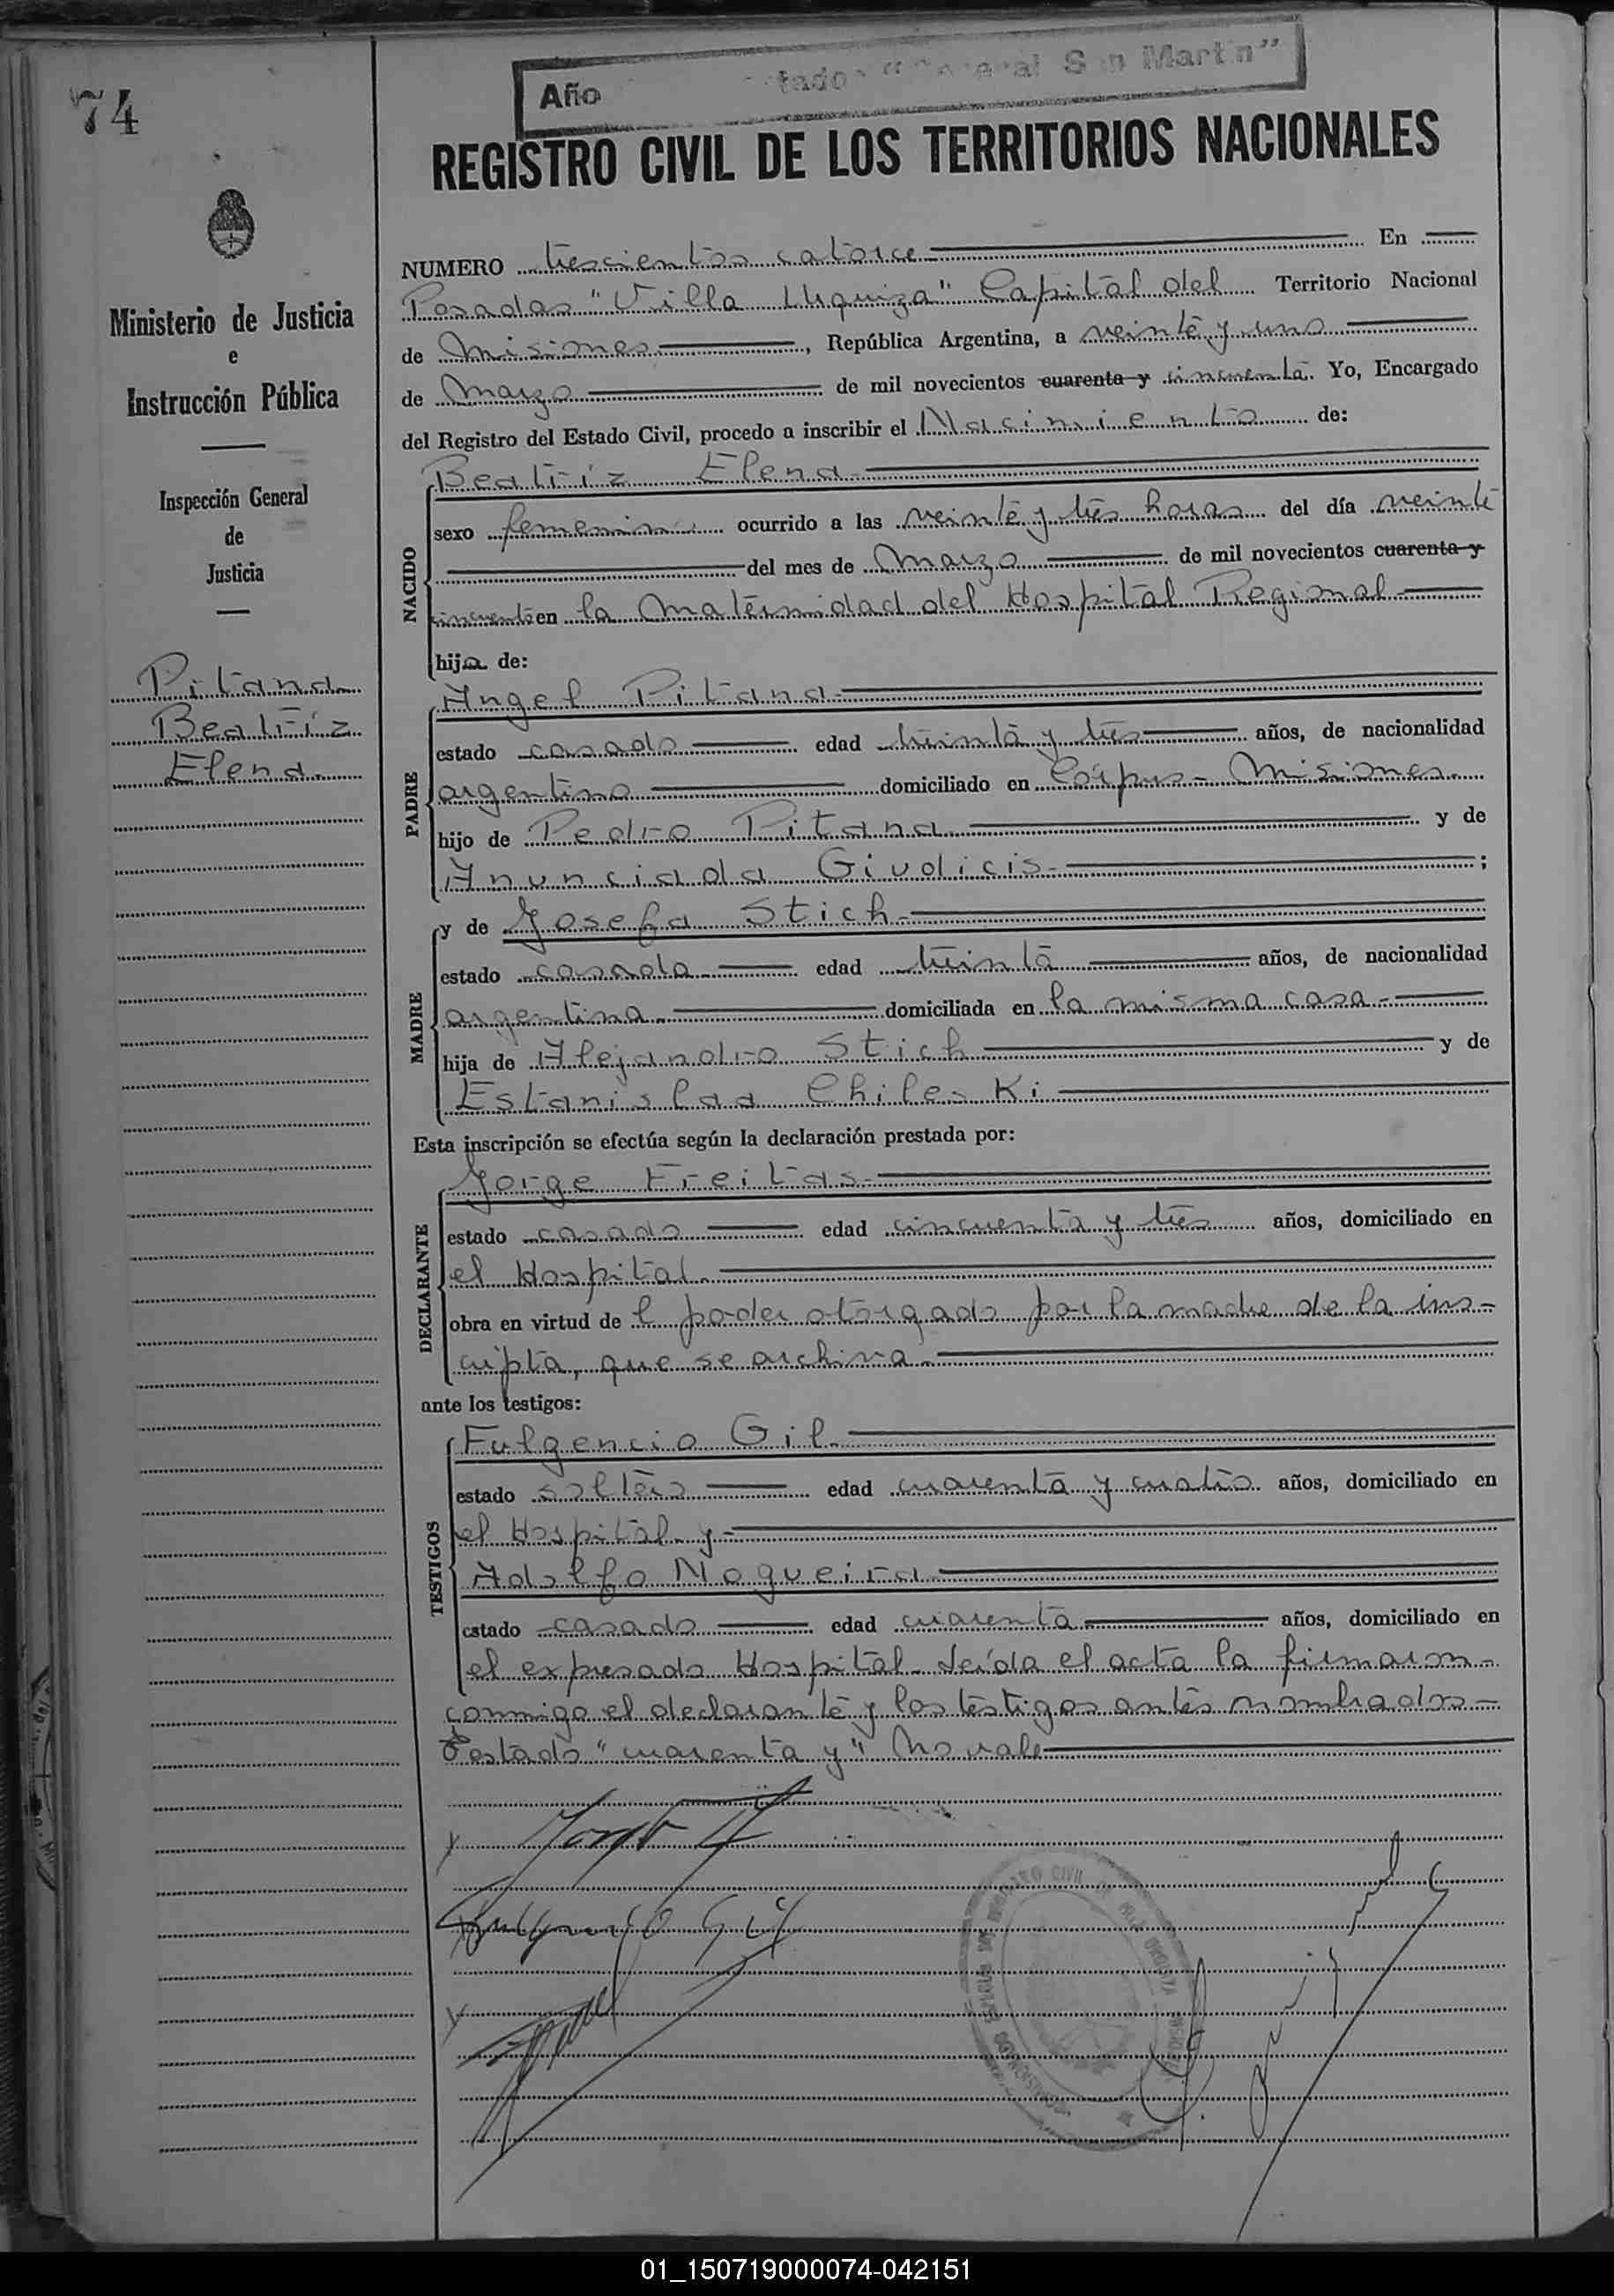 74
Año
"General San Martín"
REGISTRO CIVIL DE LOS TERRITORIOS NACIONALES
Ministerio de Justicia
e
Instrucción Pública
Inspección General
de
Justicia
Pitana
Beatríz
Elena
NUMERO trescientos catorce En
Posadas "Villa Urquiza" Capital del Territorio Nacional
de Misiones, República Argentina, a veinte y uno
de Marzo de mil novecientos cuarenta y cincuenta. Yo, Encargado
del Registro del Estado Civil, procedo a inscribir el Nacimiento de:
NACIDO
Beatríz Elena
sexo femenino ocurrido a las veinte y tres horas del día veinte
del mes de Marzo de mil novecientos cuarenta y
cincuenta en la Maternidad del Hospital Regional
hija de:
PADRE
Angel Pitana
estado casado edad treinta y tres años, de nacionalidad
argentino domiciliado en Córpus - Misiones
hijo de Pedro Pitana y de
Anunciada Giudicis ;
MADRE
y de Josefa Stich
estado casada edad treinta años, de nacionalidad
argentina domiciliada en la misma casa
hija de Alejandro Stich y de
Estanislaa Chileski
Esta inscripción se efectúa según la declaración prestada por:
DECLARANTE
Jorge Freitas
estado casado edad cincuenta y tres años, domiciliado en
el Hospital
obra en virtud de l poder otorgado por la madre de la ins-
cripta, que se archiva.
ante los testigos:
TESTIGOS
Fulgencio Gil
estado soltero edad cuarenta y cuatro años, domiciliado en
el Hospital y
Adolfo Nogueira
estado casado edad cuarenta años, domiciliado en
el expresado Hospital. Leída el acta la firmaron
conmigo el declarante y los testigos antes nombrados
Testado "cuarenta y" No vale
01_150719000074-042151